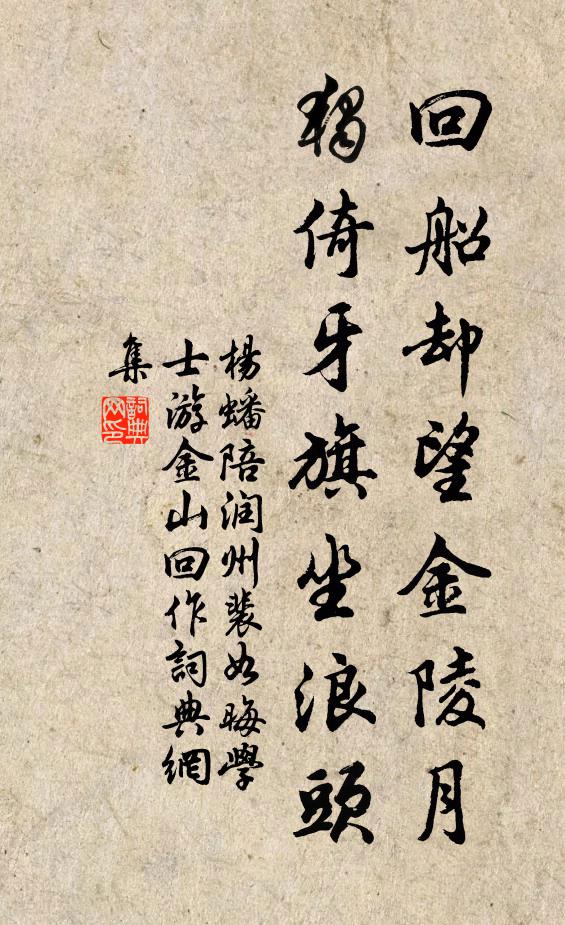 回船却望金陵月
獨倚牙旗坐浪頭
楊蟠陪润州裴如晦學
士游金山回作詞典網
集
詞典
网印